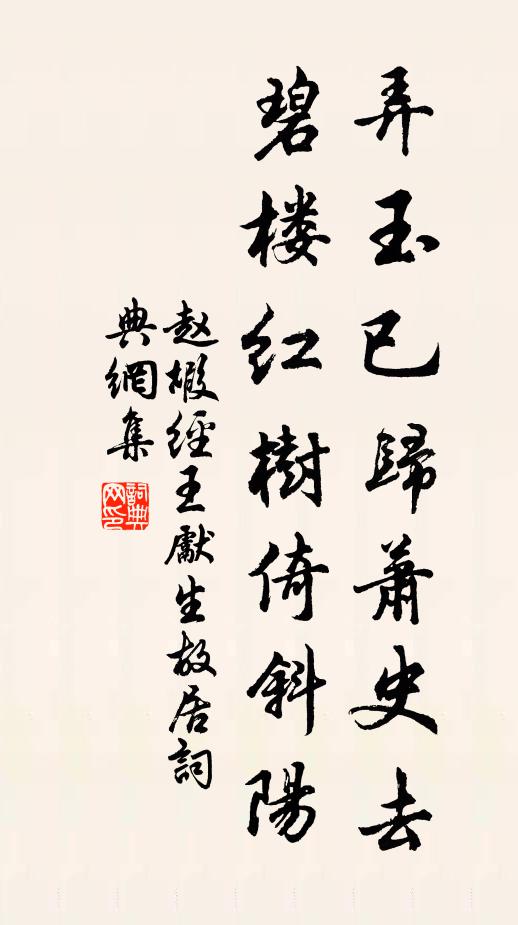 弄玉已歸蕭史去
碧楼红樹倚斜陽
赵嘏经王獻生故居詞
典網集
詞典网印